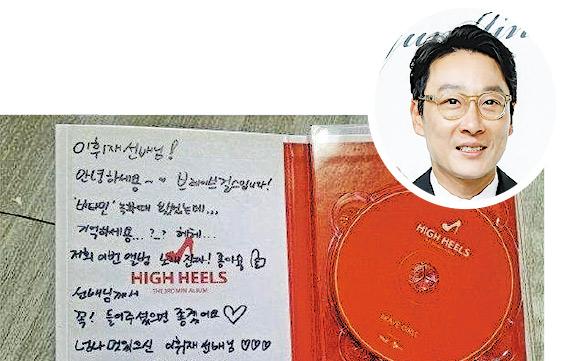 이휘재 선배님!
안녕하세용~~ 브레이브걸스입니다!
'비타민' 녹화때 뵀었는데...
기억하세용...?_? 헤헤...
저희 이번 앨범 노래 진짜! 좋아용
HIGH HEELS
THE 3RD MINI ALBUM
선배님께서
꼭! 들어주셨으면 좋겠어요♡
너무 멋있으신 이휘재 선배님♡♡♡
HIGH HEELS
BRAVE GIRLS